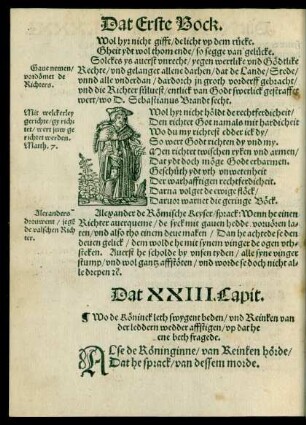 Dat Erste Bock.
Wol hyr nicht gifft / de licht vp dem rücke.
Gheit ydt wol thom ende / so segge van gelücke.
Solckes ys auerst vnrecht / yegen wertlike vnd Gödtlike
Gaue nemen /
vordömet de
Richters.
Rechte / vnd gelanget allene darhen / dat de Lande / Stede /
vnnd alle vnderdan / dardorch in groth vorderff gebracht /
vnd die Richter süluest / entlick van Gode swerlick gestraffet
wert / wo D. Sebastianus Brandt secht.
Mit welckerley
gerichte / gy rich
tet / wert jow ge
richtet werden.
Matth. 7.
Wol hyr nicht hölde de rechtferdicheit /
Den richtet Got namals mit hardicheit
Wo du my richtest edder ick dy /
So wert Godt richten dy vnd my.
Men richtet twischen ryken vnd armen /
Dat ydt doch möge Gode erbarmen.
Geschüth ydt vth vnwetenheit
Der warhafftigen rechtferdicheit.
Daran volget de ewige flöck /
Daruor warnet die geringe Böck.
Alexanders
drouwent / jegē
de valschen Rich
ter.
Alexander de Römische Keyser / sprack: Wenn he einen
Richter auerqueme / de sick mit gauen hedde vorvören la-
ren / vnd also tho einem deue maken / Dan he achtede se den
deuen gelick / dem wolde he mit synem vinger de ogen vth-
steken. Auerst he scholde by vnsen tyden / alle syne vinger
stump / vnd wol gantz affstöten / vnd worde se doch nicht al-
le drepen rc.
Dat XXIII. Capit.
¶ Wo de Köninck leth swygent beden / vnd Reinken van
der leddern wedder affstigen / vp dat he
ene beth fragede.
Alse de Köninginne / van Reinken hörde /
Dat he sprack / van dessem morde.